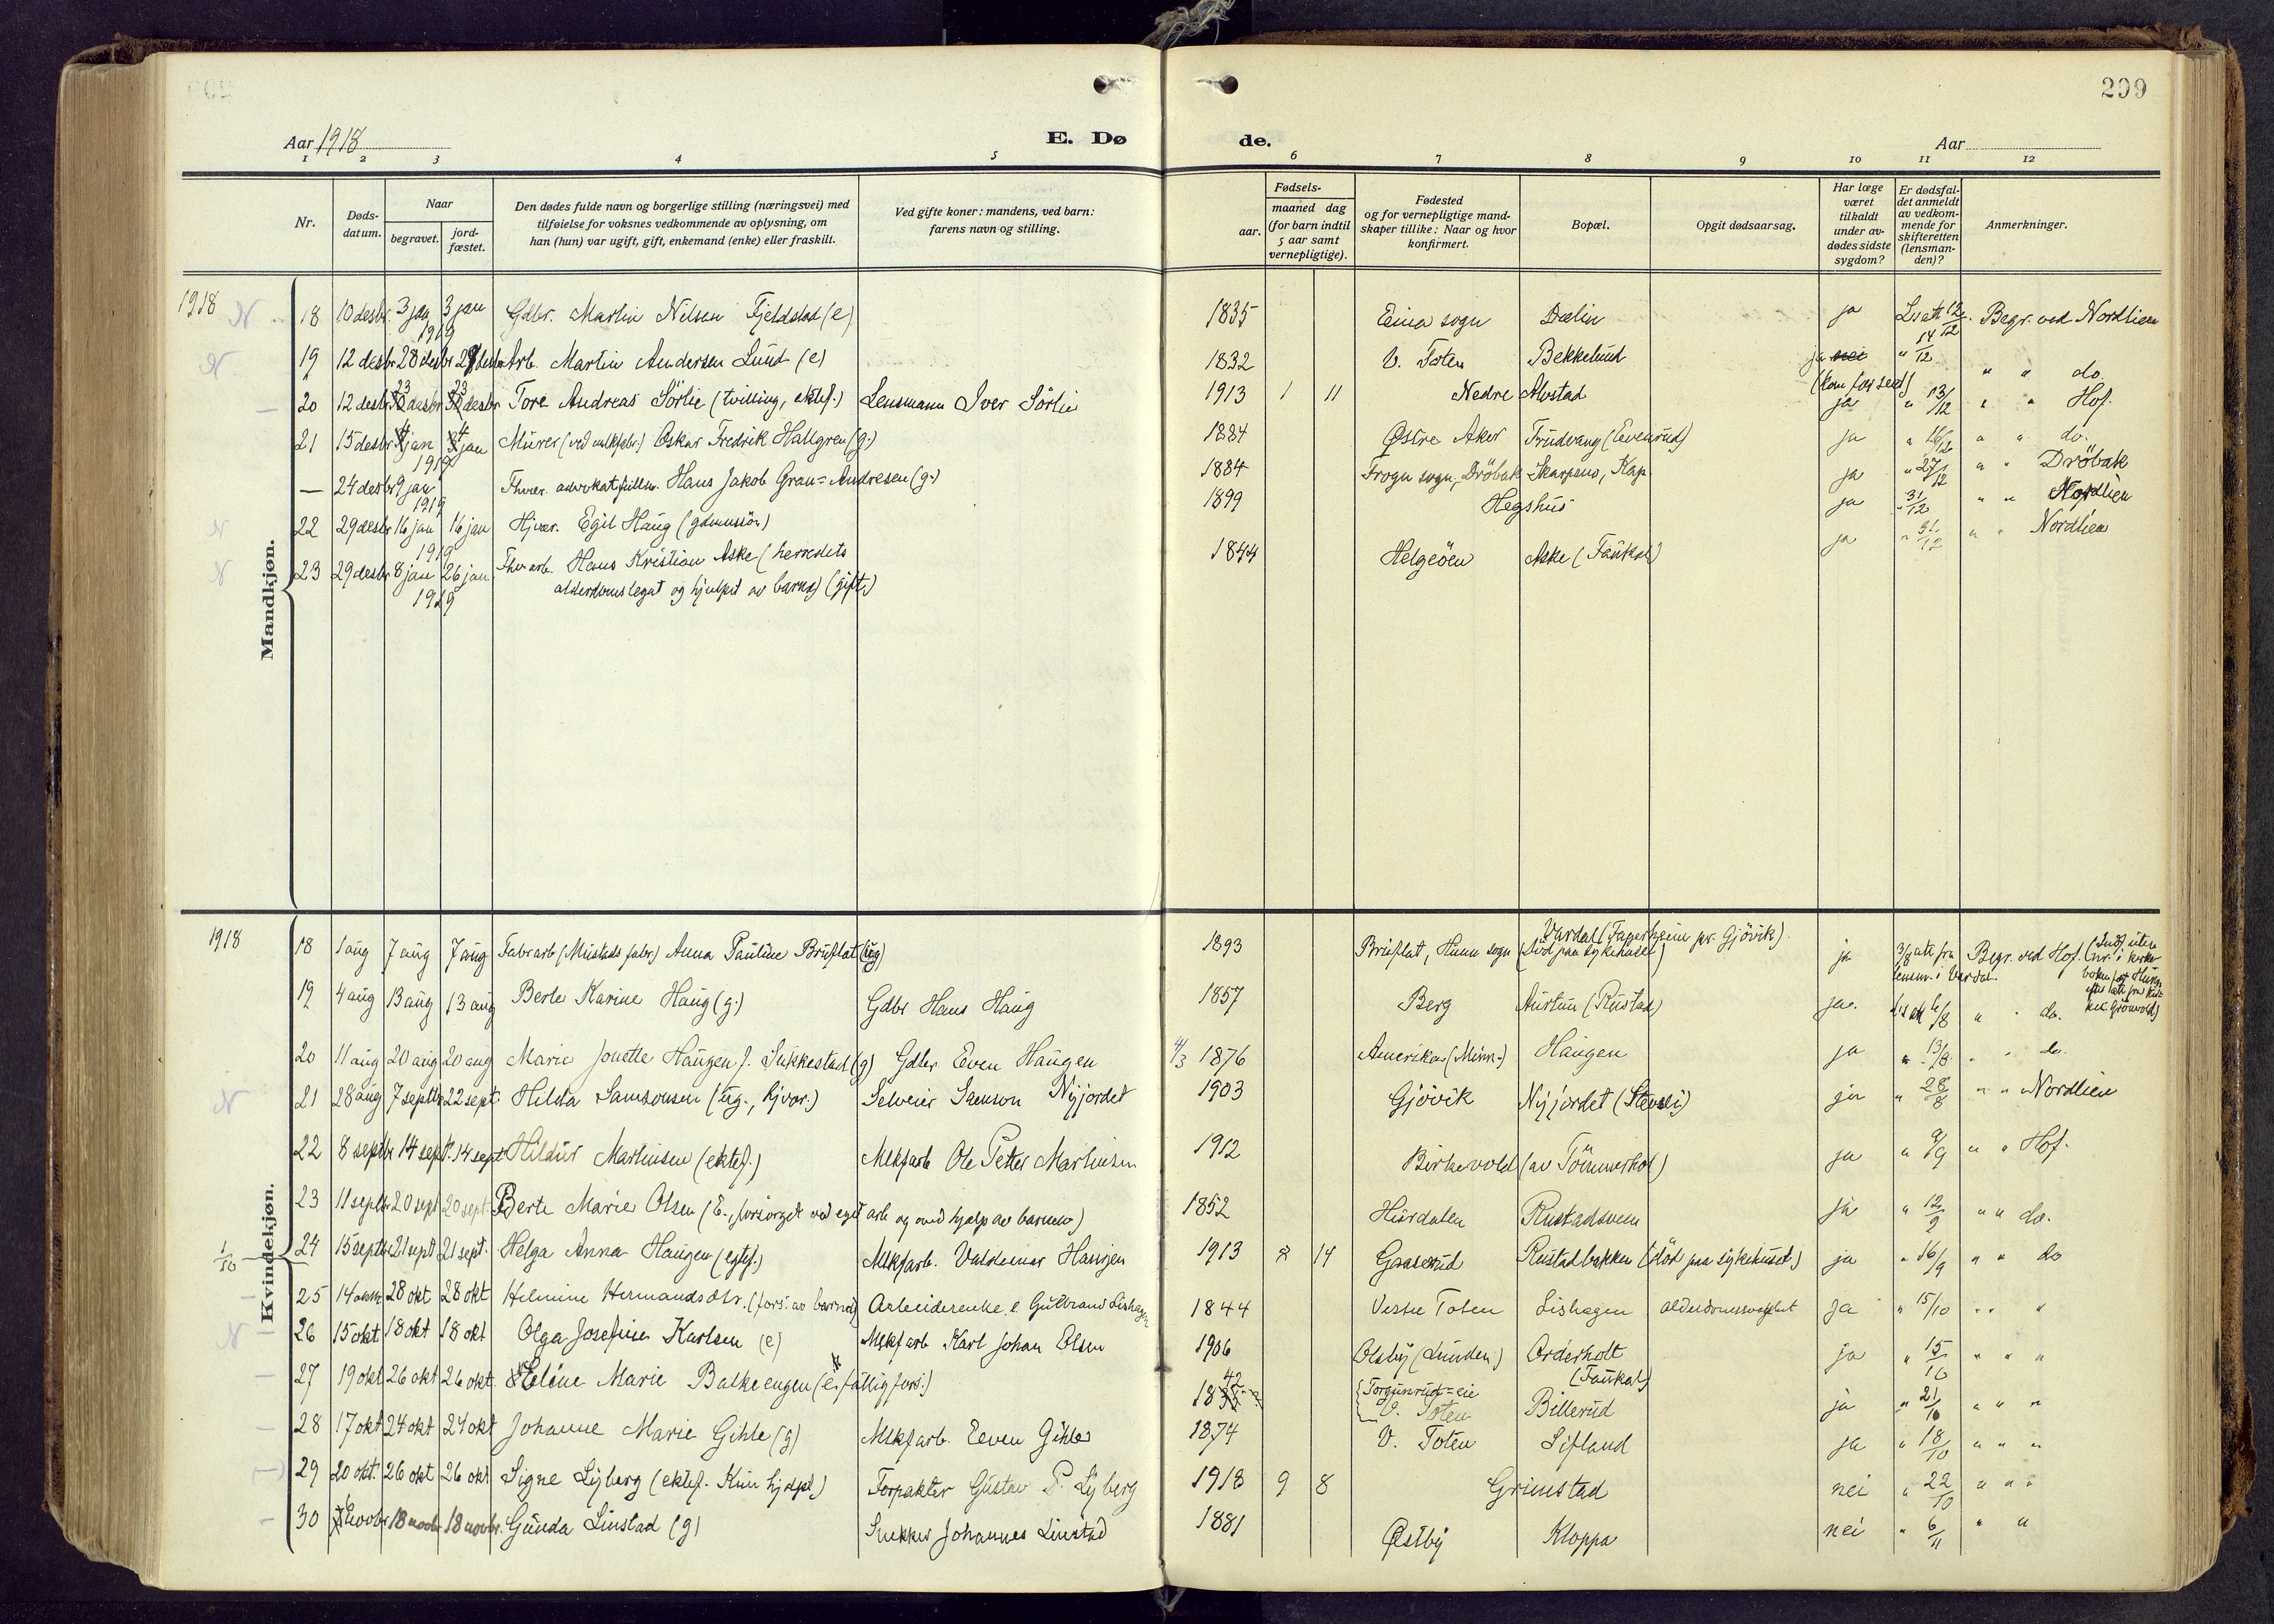 299
Aar 1918
E. Dø
de.
Aar
1 2 3 4 5 6 7 8 9 10 11 12
Nr.
Døds-
datum.
Naar
begravet.
jord-
fæstet.
Den dødes fulde navn og borgerlige stilling (næringsvei) med
tilføielse for voksnes vedkommende av oplysning, om
han (hun) var ugift, gift, enkemand (enke) eller fraskilt.
Ved gifte koner: mandens, ved barn:
farens navn og stilling.
Fødsels-
aar.
maaned dag
(for barn indtil
5 aar samt
vernepligtige).
Fødested
og for vernepligtige mand-
skaper tillike: Naar og hvor
konfirmert.
Bopæl.
Opgit dødsaarsag.
Har læge
været
tilkaldt
under av-
dødes sidste
sygdom?
Er dødsfal-
det anmeldt
av vedkom-
mende for
skifteretten
(lensman-
den)?
Anmerkninger.
Mandkjøn.
1918 N 18 10 desbr. 3 jan 1919 3 jan Gdbr. Martin Nilsen Fjeldstad (e) 1835 Eina sogn Dælin ja Ls att 12/12. Begr. ved Nordlien
N. 19 12 desbr 28 desbr 28 desbr Arb. Martin Andersen Lund (e) 1832 V. Toten Bekkelund ja nei (kom for sent) " 14/12 " " do.
20 12 desbr 23 desbr 23 desbr Tore Andreas Sörlie (tvilling, ektef.) Lensmann Iver Sörlie 1913 1 11 Nedre Alvstad ja " 13/12 " " Hof.
21 15 desbr 4 jan 1919 4 jan Murer (ved mlkfabr.) Oskar Fredrik Hallgren (g.) 1884 Østre Aker Trudvang (Evenrud) ja " 16/12 " " do.
— 24 desbr 9 jan 1919 Fhver. advokatfullm. Hans Jakob Gran=Andresen (g.) 1884 Frogn sogn, Dröbak Skarpsno, Kap ja " 27/12 " " Dröbak
N 22 29 desbr 16 jan 1919 16 jan Hjvær. Egil Haug (gdmnssön) 1899 Hegshus ja " 31/12 " " Nordlien
N 23 29 desbr 8 jan 1919 26 jan Fhv arb. Hans Kristian Aske (herredets
alderdomslegat og hjulpet av barna) (gift) 1844 Helgeöen Aske (Faukal) ja " 31/12 " " Nordlien
Kvindekjøn.
1918 18 1 aug 7 aug 7 aug Fabrarb (Mustads fabr.) Anna Pauline Bruflat (ug) 1893 Bruflat, Hunn sogn Vardal (Fagerheim pr. Gjövik) (Död paa sykehuset) ja 3/8 att fra
lensm. i Vardal. Begr. ved Hof.
19 4 aug 13 aug 13 aug Berte Karine Haug (g.) Gdbr Hans Haug 1857 Berg Aurtun (Rustad) ja. Ls att 6/8 " " do.
20 11 aug 20 aug 20 aug Marie Jonette Haugen f. Sukkestad (g) Gdbr Even Haugen 4/3 1876 Amerika (Minn.) Haugen ja " 13/8 " " do.
N 21 28 aug 7 septbr 22 sept. Hilda Samsonsen (ug., hjvær.) Selveier Samson Nyjordet 1903 Gjövik Nyjordet (Stensli) ja " 28/8 " " Nordlien
22 8 septbr 14 sept. 14 sept Hildur Martinsen (ektef.) Mlkfarb Ole Petter Martinsen 1912 Birkevold (av Tömmerhol) ja " 9/9 " " Hof.
23 11 septbr 20 sept 20 sept. Berte Marie Olsen (E., forsörget ved eget arb og med hjelp av barnene) 1852 Hurdalen Rustadsveen ja " 12/9 " " do.
1/10 24 15 septbr 21 sept 21 sept. Helga Anna Haugen (egtef.) Mlkfarb. Valdemar Haugen 1913 2 14 Gaaserud Rustadbakken (död paa sykehuset) ja " 16/9 " " do
25 14 oktbr 28 okt 28 okt Helmine Hermandsdtr. (fors. av barna) Arbeiderenke e. Gudbrand Lishagen 1844 Vestre Toten Lishagen alderdomssvakhet ja " 15/10 " " "
N 26 15 okt 18 okt 18 okt Olga Josefine Karlsen (e) Mlkfarb Karl Johan Olsen 1906 Olsby (Lunden) Orderholt
(Faukal) ja " 15/10 " " "
27 19 okt 26 okt 26 okt. Eline Marie Balkeengen (e. fattigfors.) 1842 {Torgunrud=eie
V. Toten Billerud ja " 21/10 " " "
28 17 okt 24 okt 24 okt Johanne Marie Gihle (g) Mlkfarb. Even Gihle 1874 V. Toten Sifland ja " 18/10 " " "
29 20 okt. 26 okt 26 okt Signe Lyberg (ektef. Kun hjdpt.) Forpakter Gustav P. Lyberg 1918 9 8 Grimstad nei " 22/10 " " "
30 novbr 18 novbr 18 novbr. Gunda Linstad (g) Snekker Johannes Linstad 1881 Østby Kloppa nei " 6/11 " "